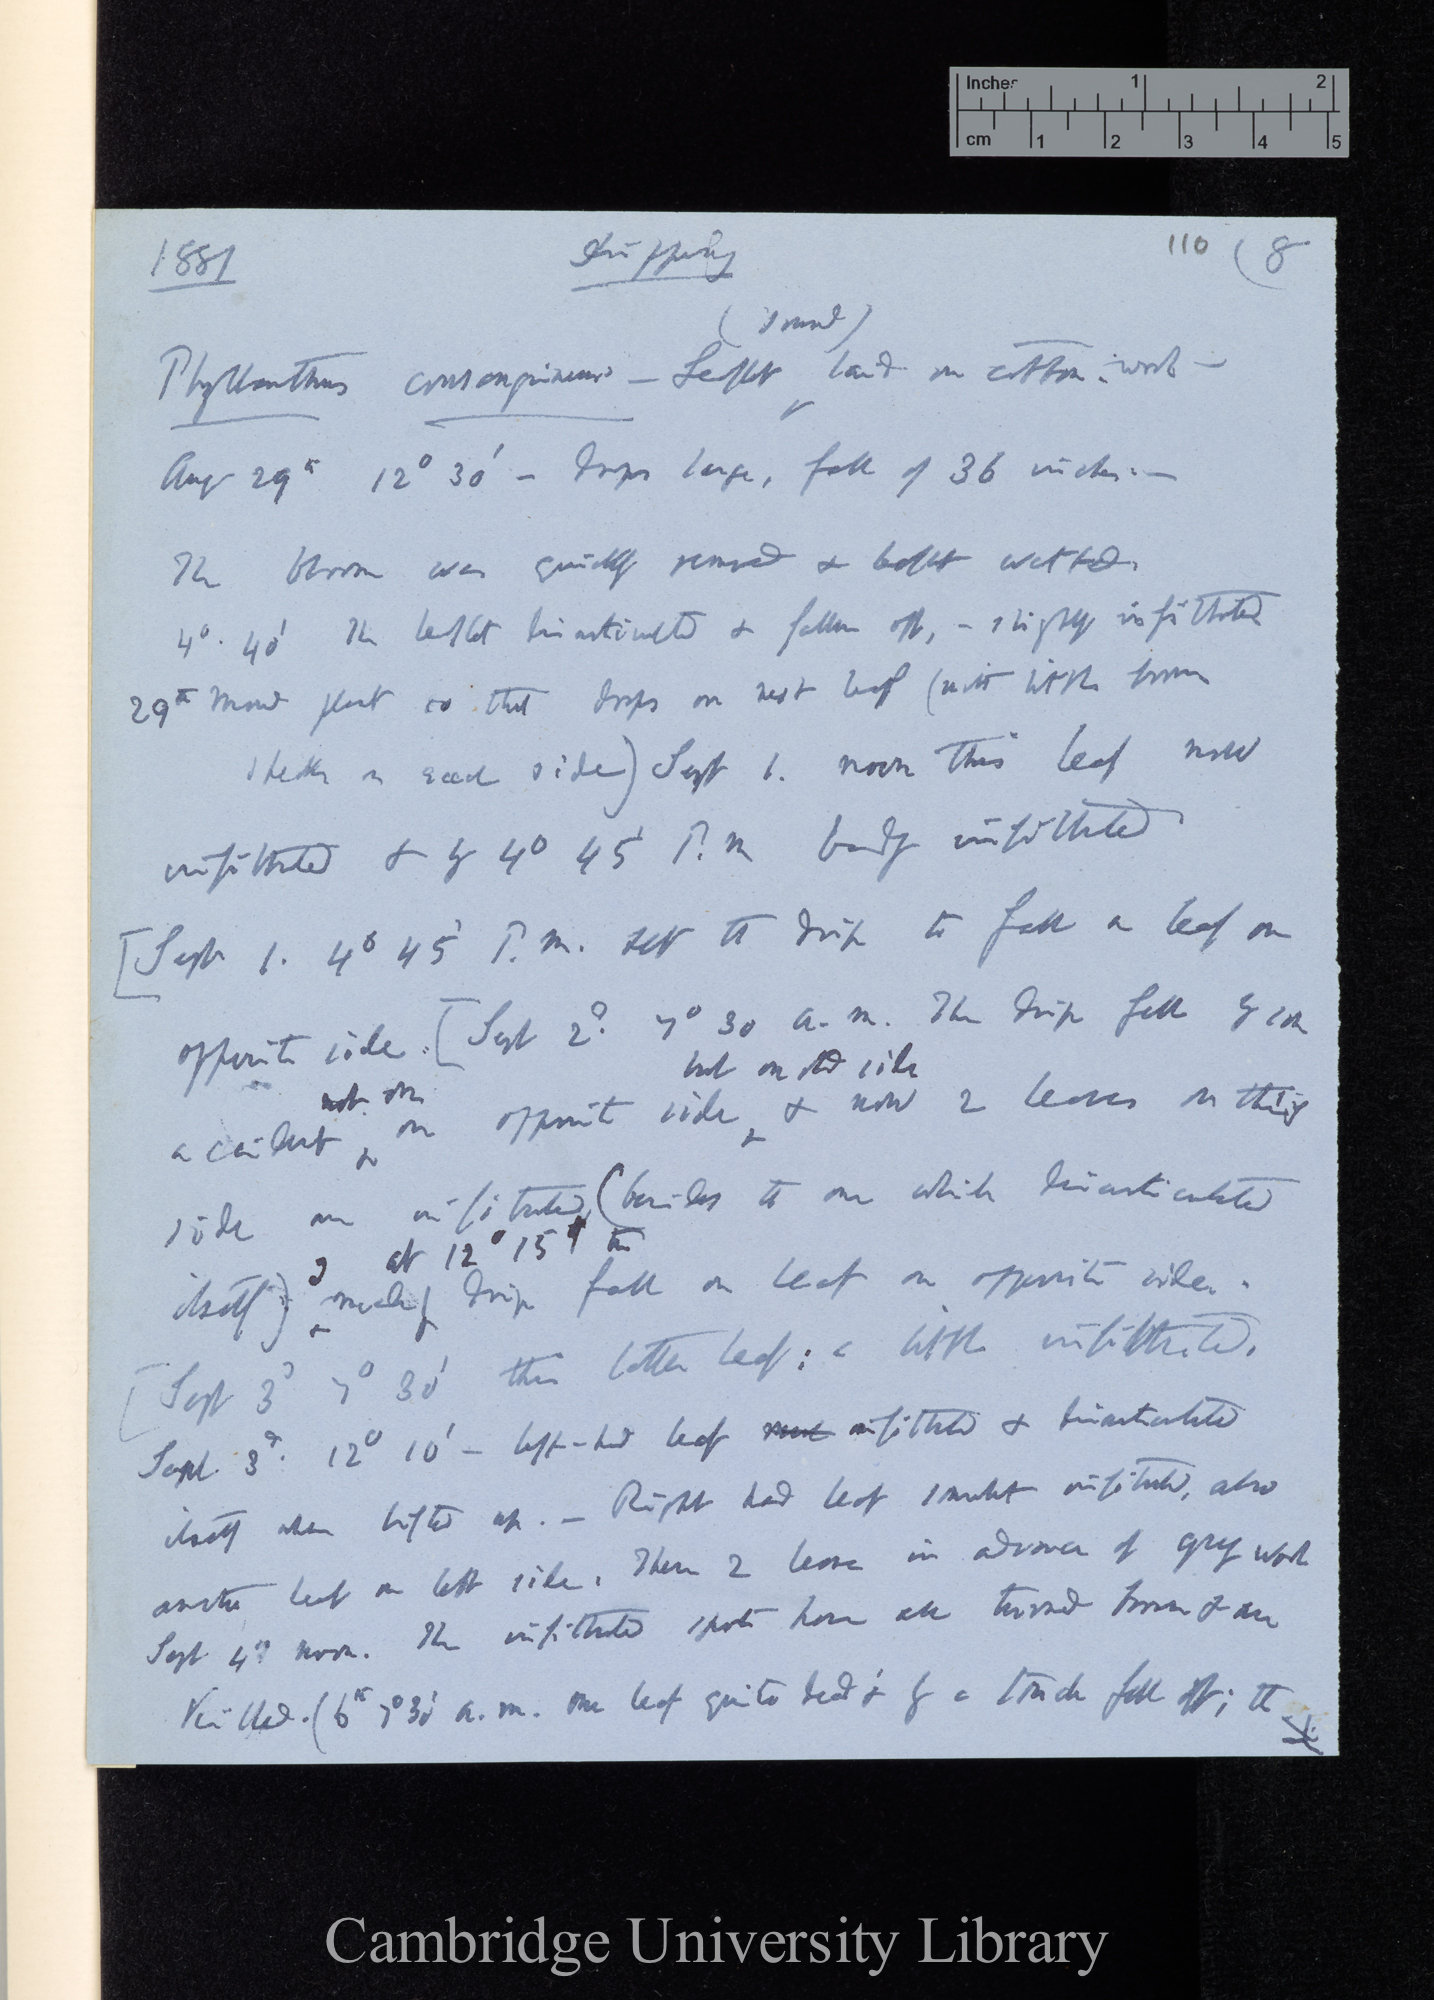 Inches 1 2
cm 1 2 3 4 5
1881 Dripping 110 (8
(sound)
Phyllanthus — Leaflet laid on cotton-wool —
Aug 29th 12° 30' — drops large, fall of 36 inches. —
The bloom was quickly removed & leaflet wetted.
4°. 40' The leaflet disarticulated & fallen off, — slightly infiltrated
29th Moved plant so that drops on next leaf (with little brown
on each side) Sept 1. noon This leaf now
infiltrated & by 4° 45' P.m badly infiltrated
[Sept 1. 4° 45' P.m. let the drip to fall on leaf on
opposite side. [Sept 2d. 7° 30 a.m. The drip fell by
not on but on old side
accident on opposite side, & now 2 leaves on this
side are infiltrated, (besides the one which disarticulated
at 12° 15'
itself) drip fall on leaf on opposite side.
[Sept 3d 7° 30' this latter leaf: a little infiltrated.
Sept. 3d. 12° 10' — left-hand leaf infiltrated & disarticulated
itself when lifted up. — Right hand leaf infiltrated, also
another leaf on left side. These 2 leaves in advance of grey work
Sept 4th noon. The infiltrated spots have all turned brown & are
killed. (6th 7° 30' a.m. one leaf quite dead & by a touch fell off; the
Cambridge University Library